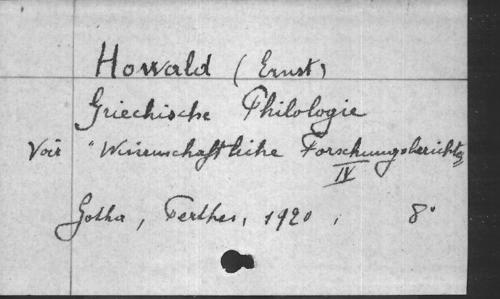 Howald (Ernst)
Griechische Philologie
Voir "Wissenschaftliche Forschungsberichte
IV
Gotha, Perthes, 1920, 8°